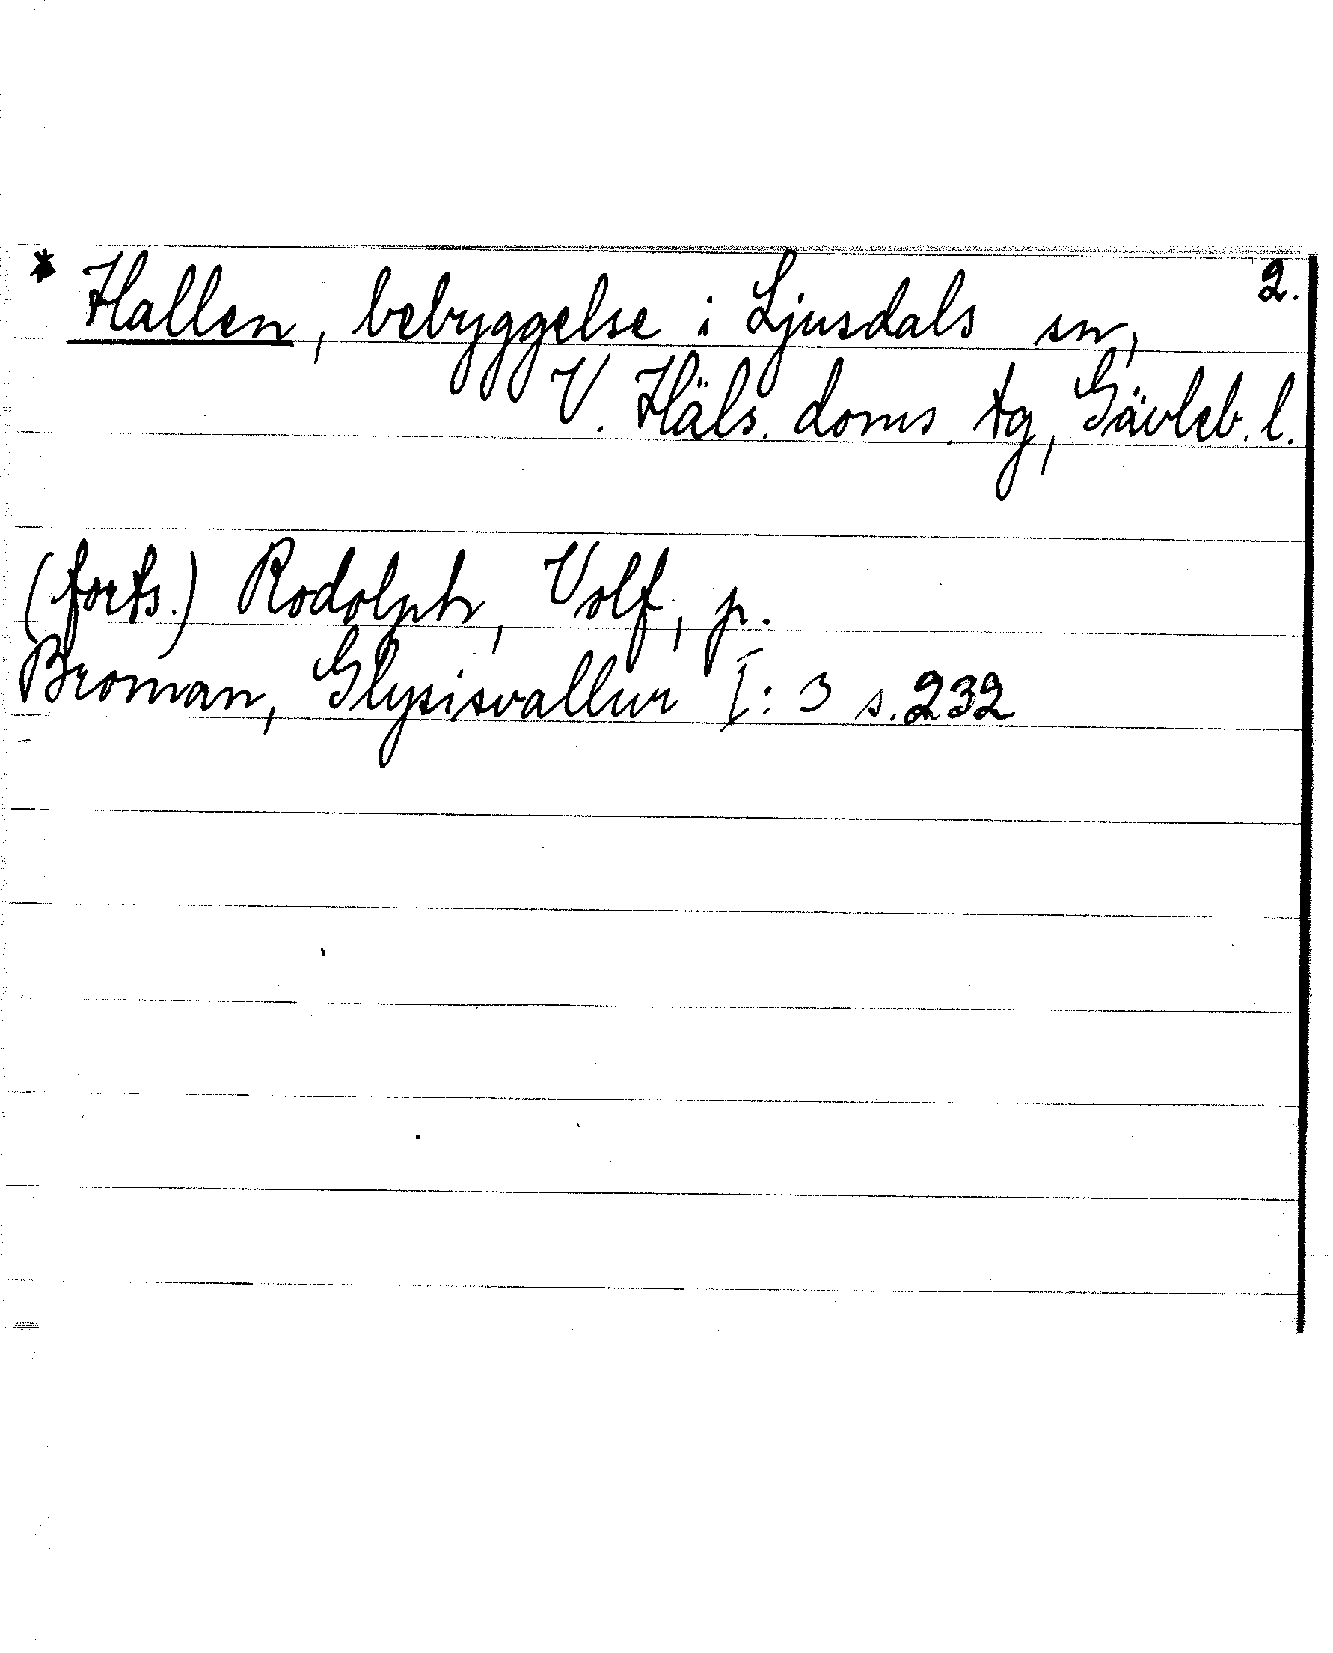 * Hallen, bebyggelse i Ljusdals sn, 2.
V. Häls. doms. tg, Gävleb. l.
(forts.) Rodolph, Volf, p.
Broman, Glysisvallur I: 3 s. 232